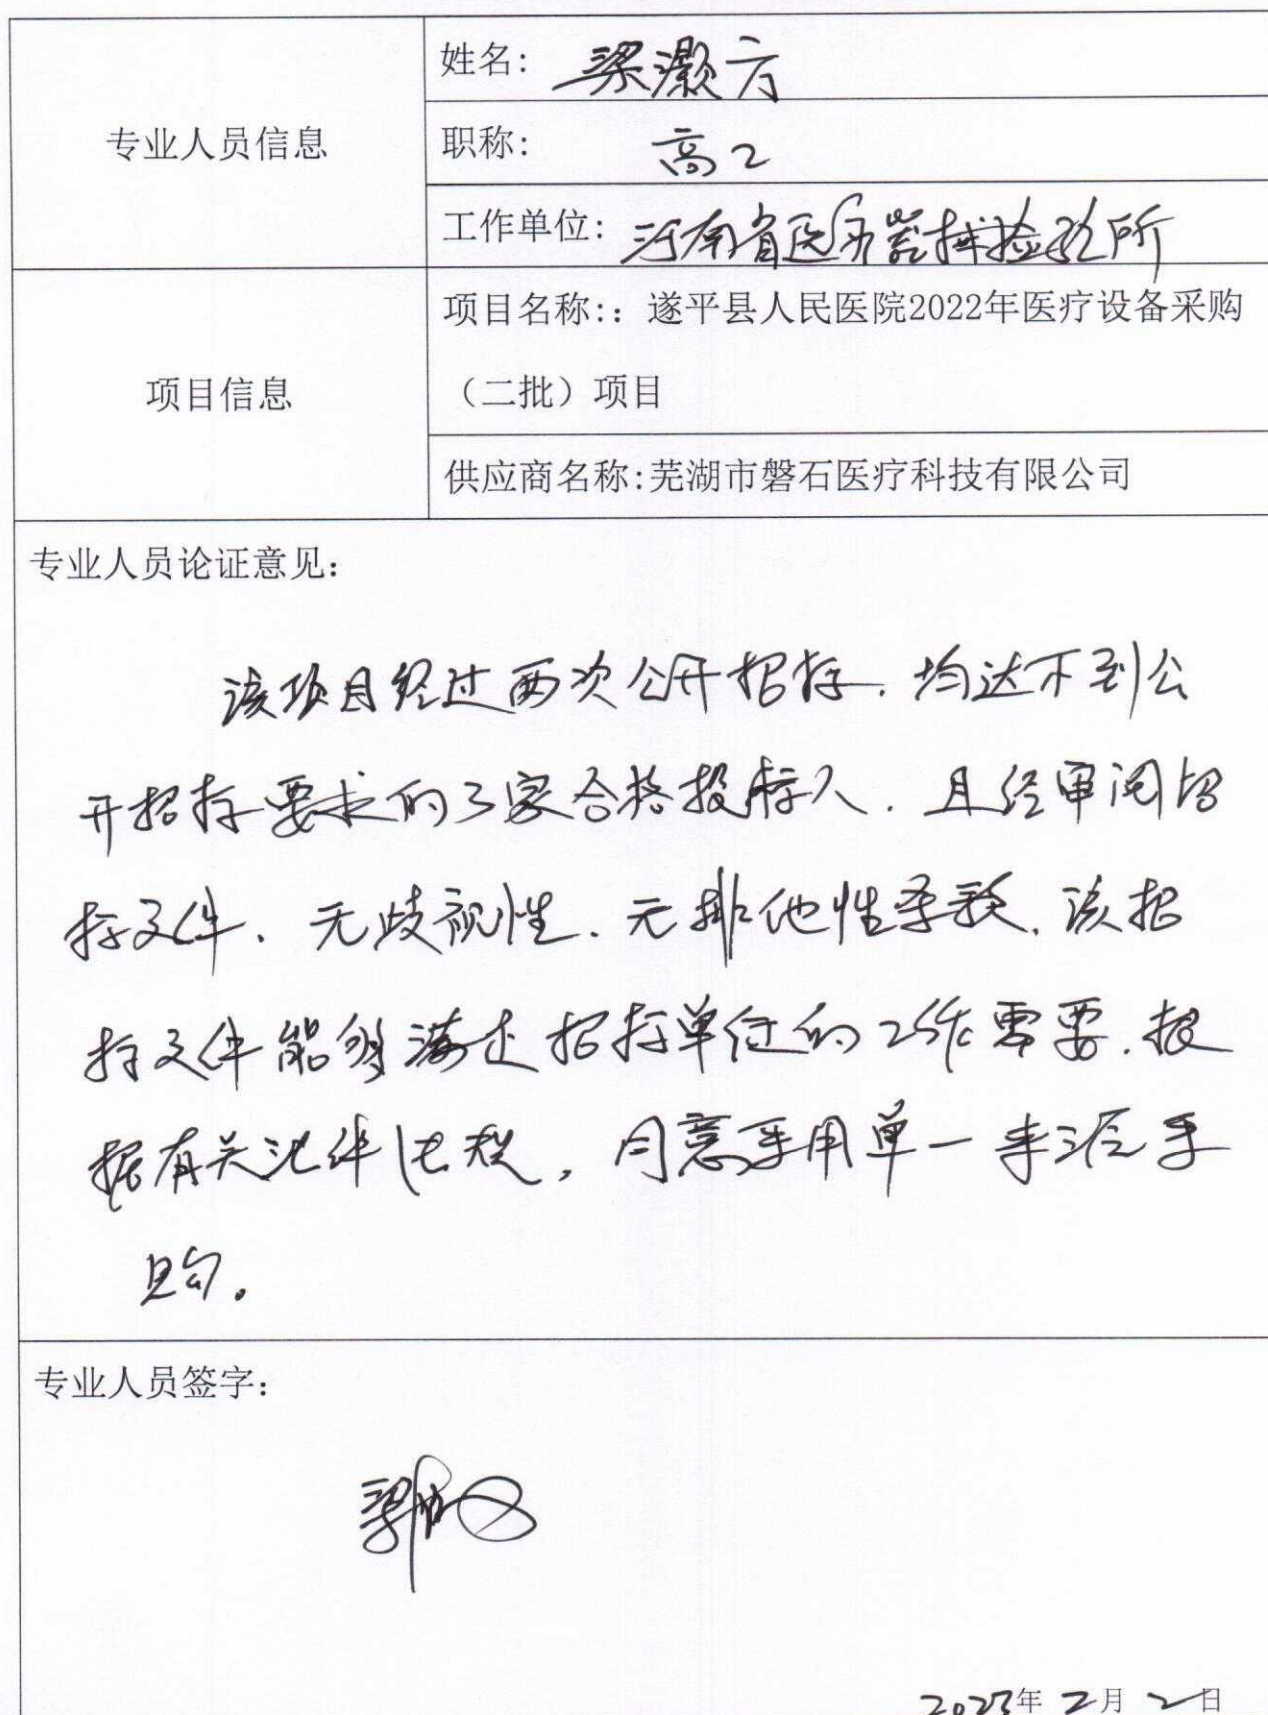 姓名: 梁灏方
专业人员信息
职称: 高工
工作单位: 河南省医疗器械检验所
项目名称:：遂平县人民医院2022年医疗设备采购
项目信息
（二批）项目
供应商名称:芜湖市磐石医疗科技有限公司
专业人员论证意见：
该项目经过两次公开招标，均达不到公
开招标要求的3家合格投标人．且经审阅招
标文件．无歧视性．无排他性条款．该招
标文件能够满足招标单位的工作需要．根
据有关法律法规，同意采用单一来源采
购。
专业人员签字：
2023年2月2日